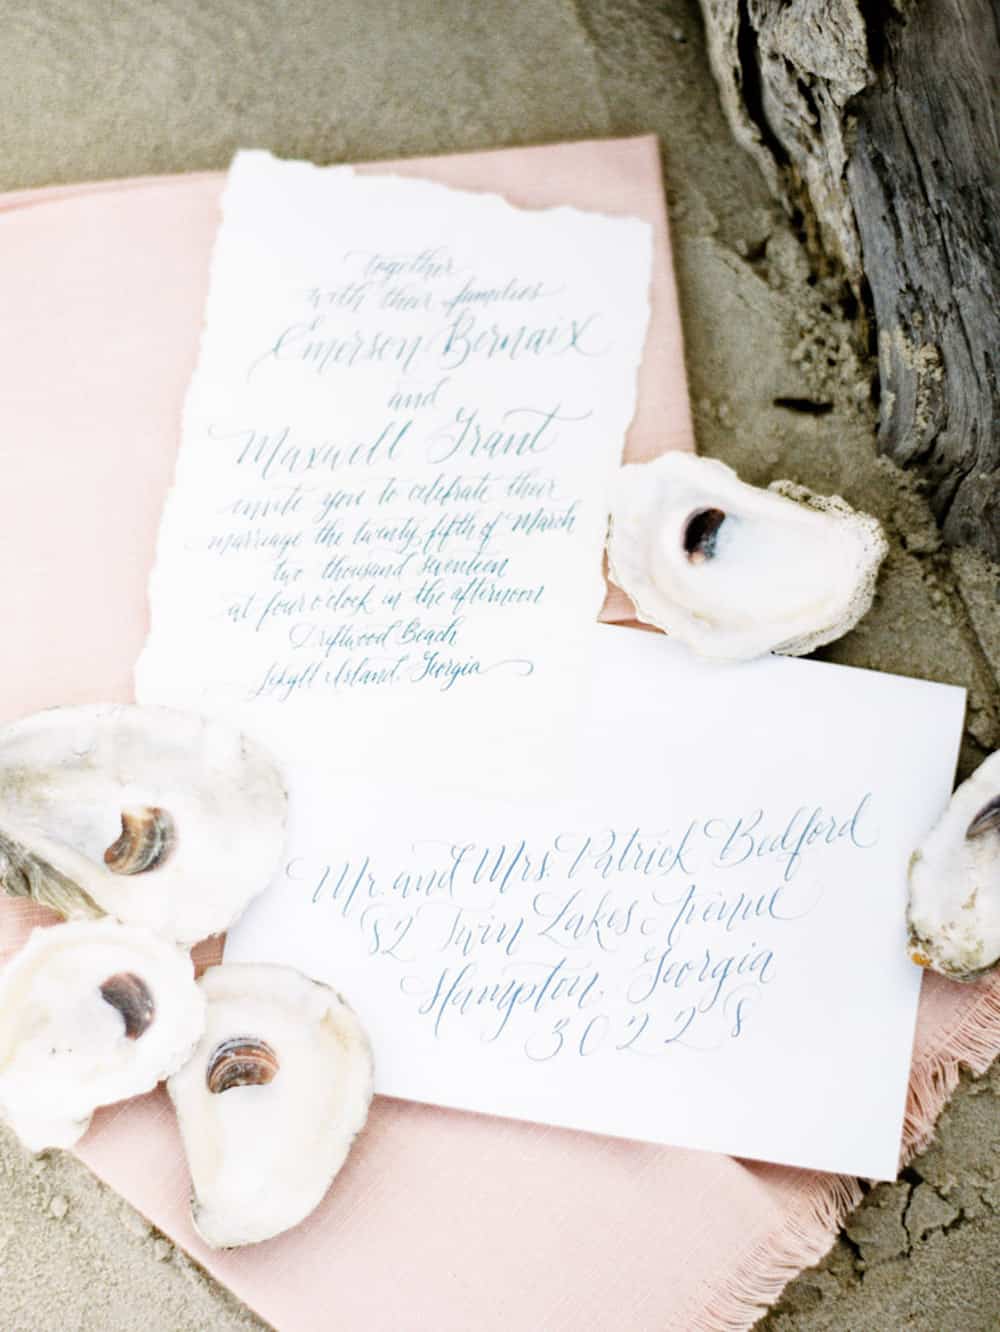 together
with their families
Emerson Bernaix
and
Maxwell Grant
invite you to celebrate their
marriage the twenty fifth of March
two thousand seventeen
at four o'clock in the afternoon
Driftwood Beach
Jekyll Island, Georgia
Mr. and Mrs. Patrick Bedford
82 Twin Lakes Avenue
Hampton, Georgia
30228